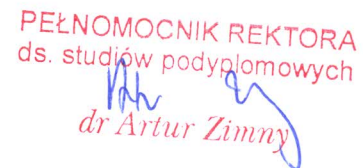 PEŁNOMOCNIK REKTORA
ds. studiów podyplomowych
dr Artur Zimny